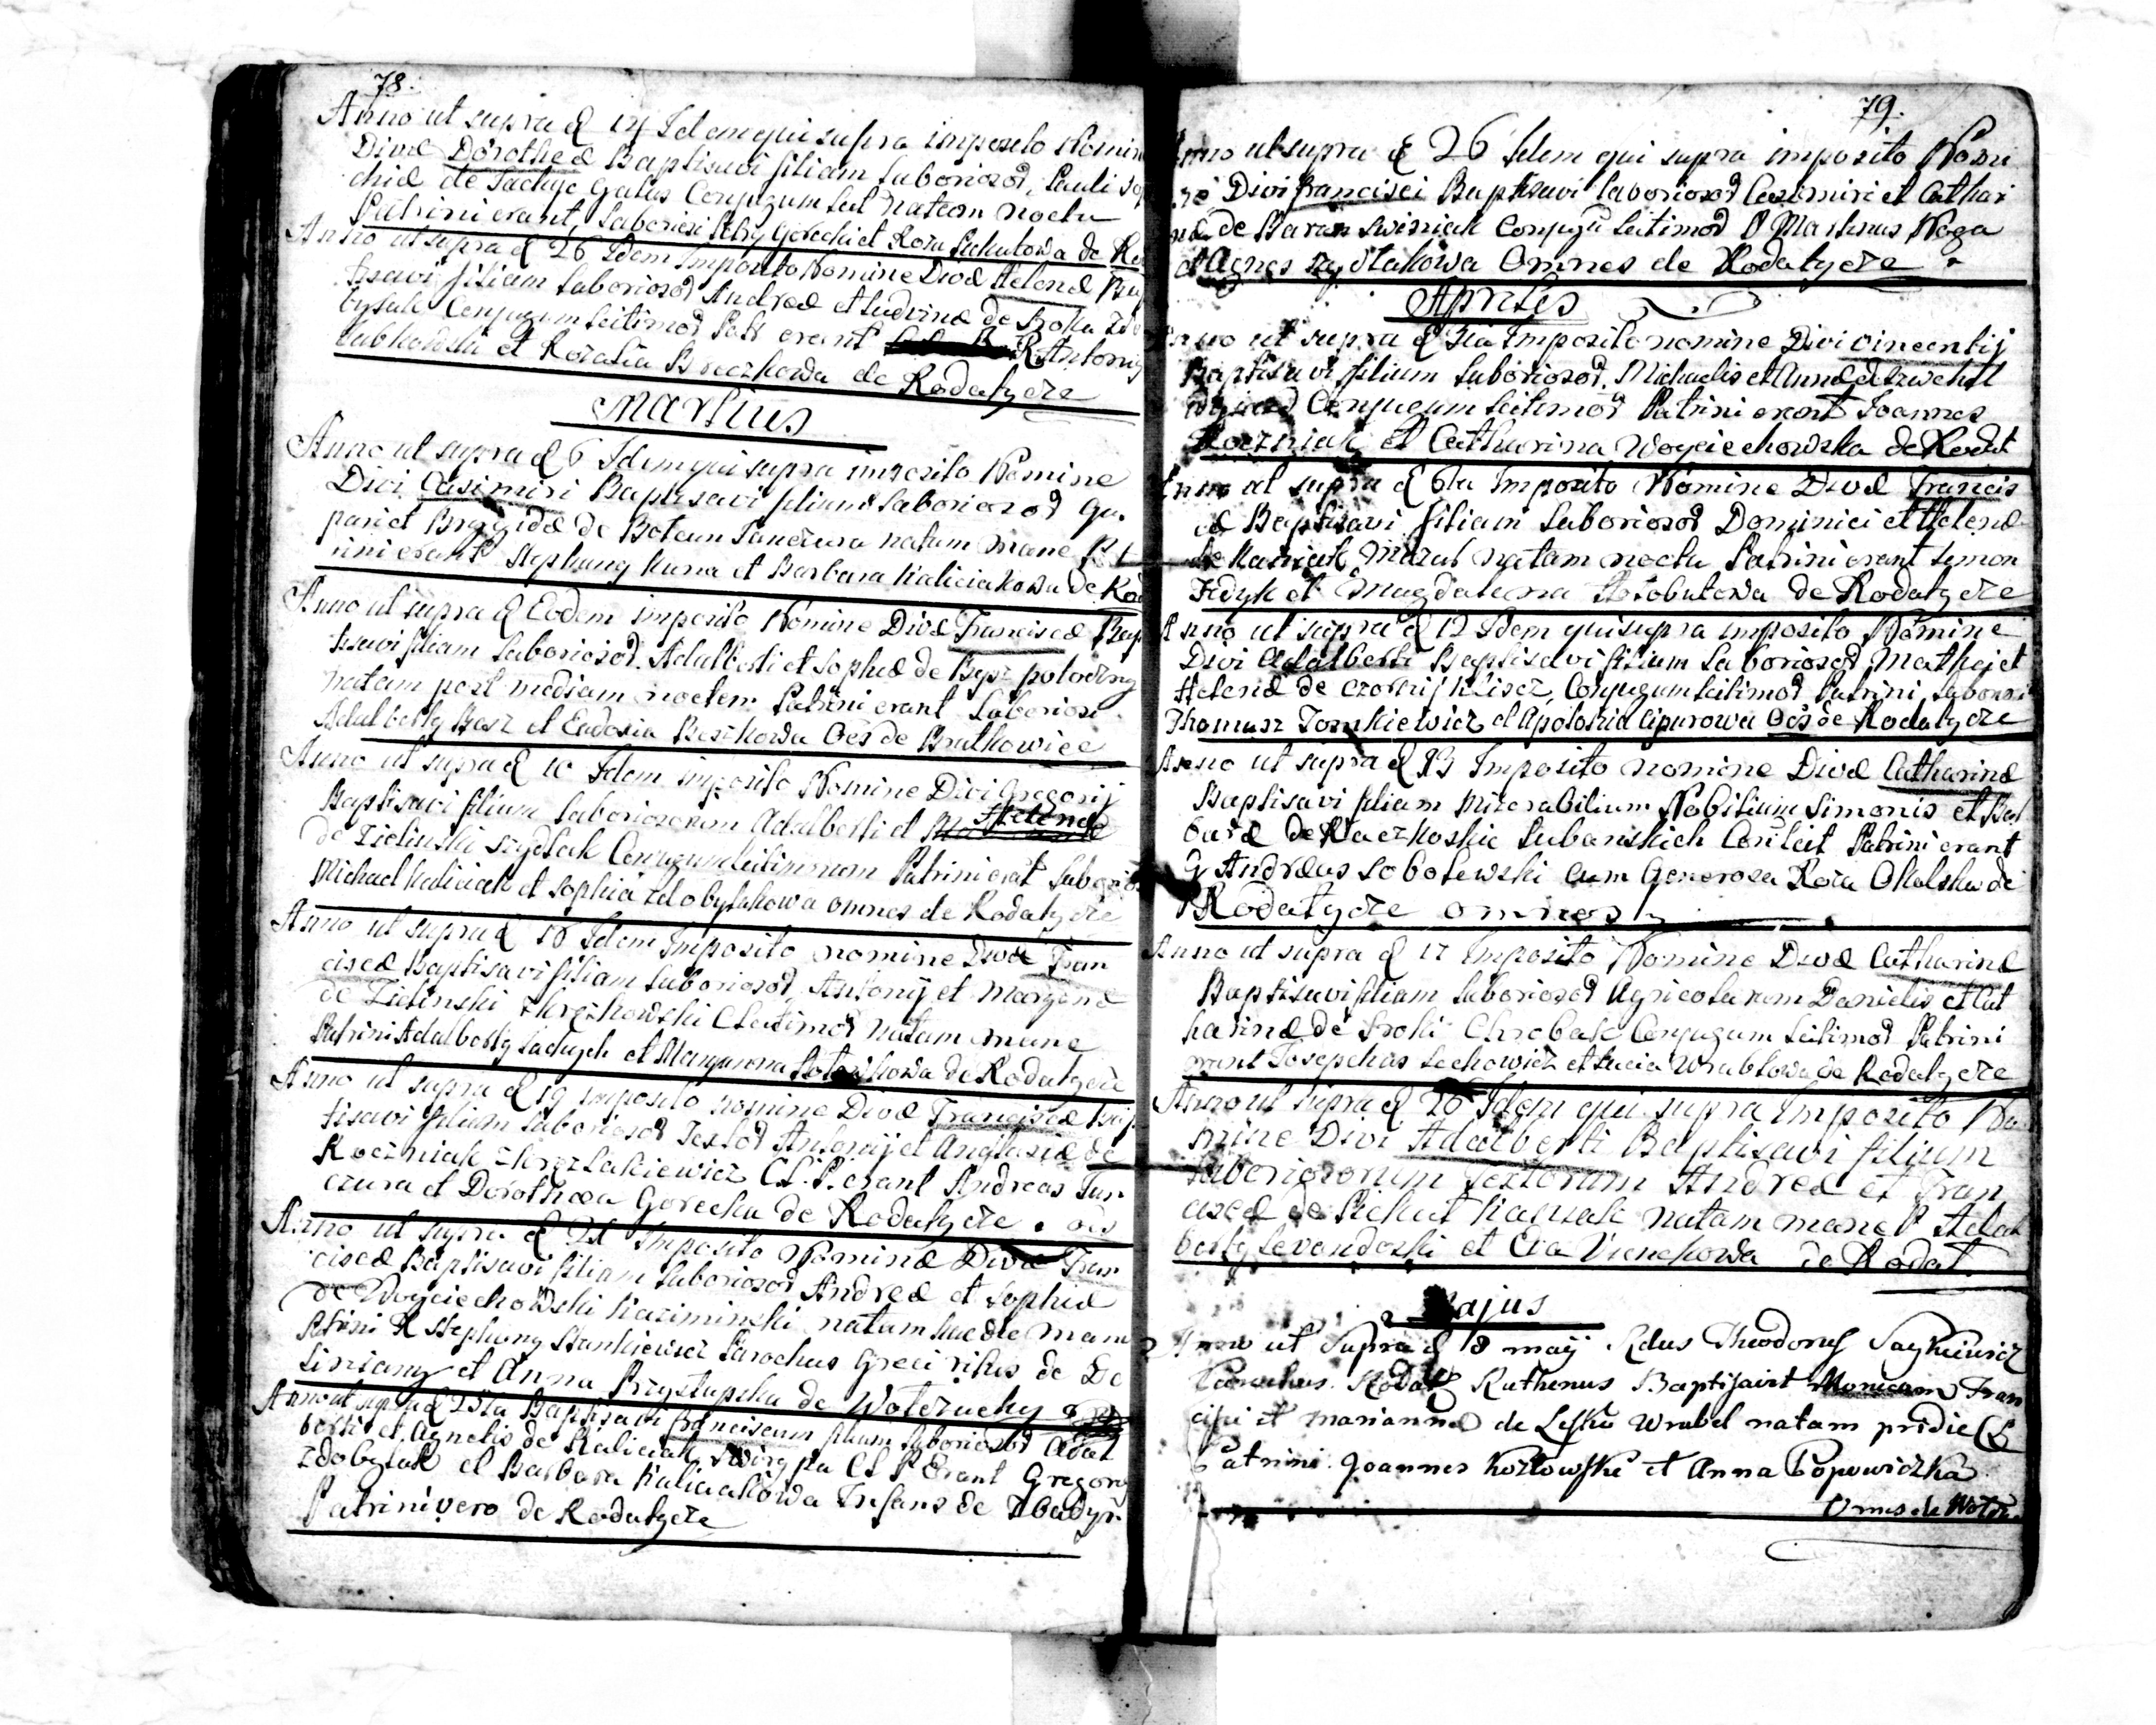 78.
Anno ut supra d 14 Idem qui supra imposito Nomin
Divæ Dorotheæ Baptisavi filiam Laboriosor. Pauli Sop
chiæ de Lachyc Galas Conjugum Leit Natam noctu
Patrini erant, Laboriosi Petry Gorecki et Roza Pichutowa de Ro
Anno ut supra d 26 Idem Imposito Nomine Divæ Helenæ Bap
tisavi filiam Laboriosor Andreæ et Ludvinæ de Sroka Zdo
bylak Conjugum Leitimor Patr erant R Antony
Lubkowski et Rozalia Broczkowa de Rodatycze
Martius
Anno ut supra d 6 Idem qui supra imposito Nomine
Divi Casimiri Baptisavi filium Laboriosor Gas
pari et Brigidæ de Botcun Panczura natum mane Pat
rini erant Stephany Kuna et Barbara Kaliciakowa de Rod
Anno ut supra d Eodem imposito Nomine Divæ Franciscæ Bap
tisavi filiam Laboriosor. Adalberti et Sophiæ de Bysz polowiny
natam post mediam noctem Patrini erant Laboriosi
Adalberty Basz et Eudosia Baszkowa Oes de Bratkowice
Anno ut supra d 10 Idem imposito Nomine Divi Gregorij
Baptisavi filium Laboriosorum Adalberti et Helenæ
de Zielinski szydlak Conjugum Leitimorum Patrini erat Laborios
Michael Kaliciak et Sophia Zdobylakowa omnes de Rodatycze
Anno ut supra d 18 Idem Imposito nomine Divæ Fran
ciscæ Baptisavi filiam Laboriosor. Antonij et Maryanæ
de Zielinski Zkrzezkowski C Leitimor natam mane
Patrini Adalberty Lachych et Maryanna de Rodatycze
Anno ut supra d 19 imposito nomine Divæ Franciscæ Bap
tisavi filiam Laboriosor Textor Antonij et Anastasiæ de
Roczniak C.L.P. erant Andreas Pan
czura et Dorothea Gorecka de Rodatycze. oes
Anno ut supra d 21 Imposito Nominæ Divæ Fran
ciscæ Baptisavi filiam Laboriosor Andreæ et Sophiæ
de Woyciechowski Kaziminski natam hac die mane
Patrini R Stephany Stankiewicz Parochus Græci ritus de
et Anna Przystupska de Wolczuchy
Anno ut supra d 25ta Baptisavi Franciscum filium Laboriosor Adal
berti et Agnetis de Kaliciak CL P Erant Gregory
Zdobylak et Barbara Kaliciakowa Infans de
Patrini vero de Rodatycze
79.
Anno ut supra d 26 Idem qui supra imposito Nomi
ne Divi Francisci Baptisavi Laboriosor Casimiri et Cathari
næ de Baran Swisniak Conjugū Leitimor P Martinus Noga
et Agnes szydlakowa Omnes de Rodatycze
Aprilis
Anno ut supra d 3tia Imposito nomine Divi Vincentij
Baptisavi filium Laboriosor. Michaelis et Annæ de
Conjugum Leitimor Patrini erant Joannes
Roczniak et Catharina Woyciechowska de Rodat
Anno ut supra d 6ta Imposito Nomine Divæ Francis
cæ Baptisavi filiam Laboriosor Dominici et Helenæ
de Mazul natam noctu Patrini erant Simon
Fedyk et Magdalena Holobutowa de Rodatycze
Anno ut supra d 12 Idem qui supra imposito Nomine
Divi Adalberti Baptisavi filium Laboriosor Mathej et
Helenæ de Conjugum Leitimor Patrini Laboriosi
Thomasz Tomkiewicz et Apolonia Cipurowa Oes de Rodatycze
Anno ut supra d 13 Imposito nomine Divæ Catharinæ
Baptisavi filiam Miserabilium Nobilium Simonis et Bar
baræ de Raczkoskie Lubanskich Con Leit Patrini erant
G Andræas Sobolewski cum Generosa Roza Okolska de
Rodatycze omnes
Anno ut supra d 17 Imposito Nomine Divæ Catharinæ
Baptisavi filiam Laboriosor Agricolarum Danielis et Cat
harinæ de Sroki Chrobak Conjugum Leitimor Patrini
erant Josephus Lechowicz et Lucia Wrublowa de Rodatycze
Anno ut supra d 26 Idem qui supra Imposito No
mine Divi Adalberti Baptisavi filium
Laboriosorum Textorum Andreæ et Fran
ciscæ de Pichut natam mane P Adal
berty Levandoski et Eva Vienckowa de Rodat.
Majus
Anno ut Supra d 8 maij Rdus Theodorus Saykiewicz
Parochus Rodat Ruthenus Baptisavit Monicam Fran
cisci et Mariannæ de Lesków Wrubel natam pridie CL
Patrini Joannes Kozłowski et Anna Popowiczka
Omnes de Wolcz.